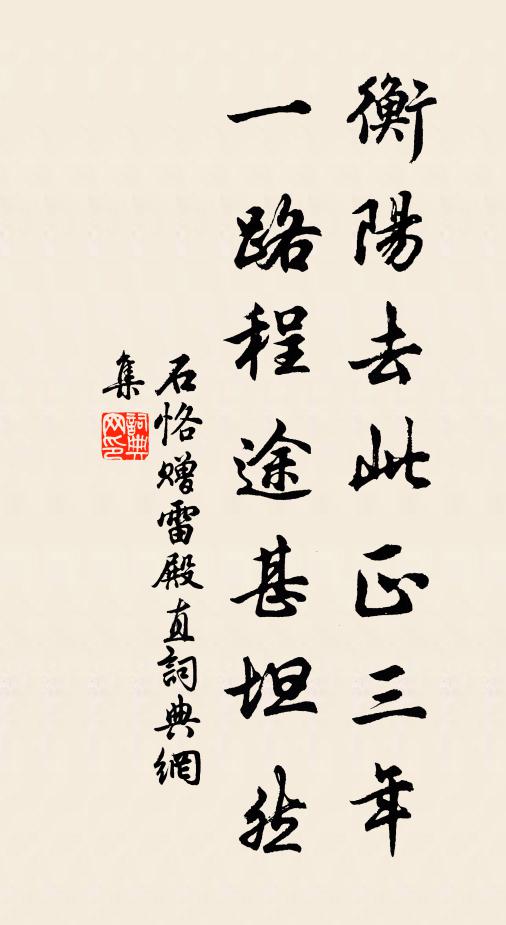 衡陽去此正三年
一路程途甚坦然
石恪贈雷殿直詞典網
集
詞典
网印